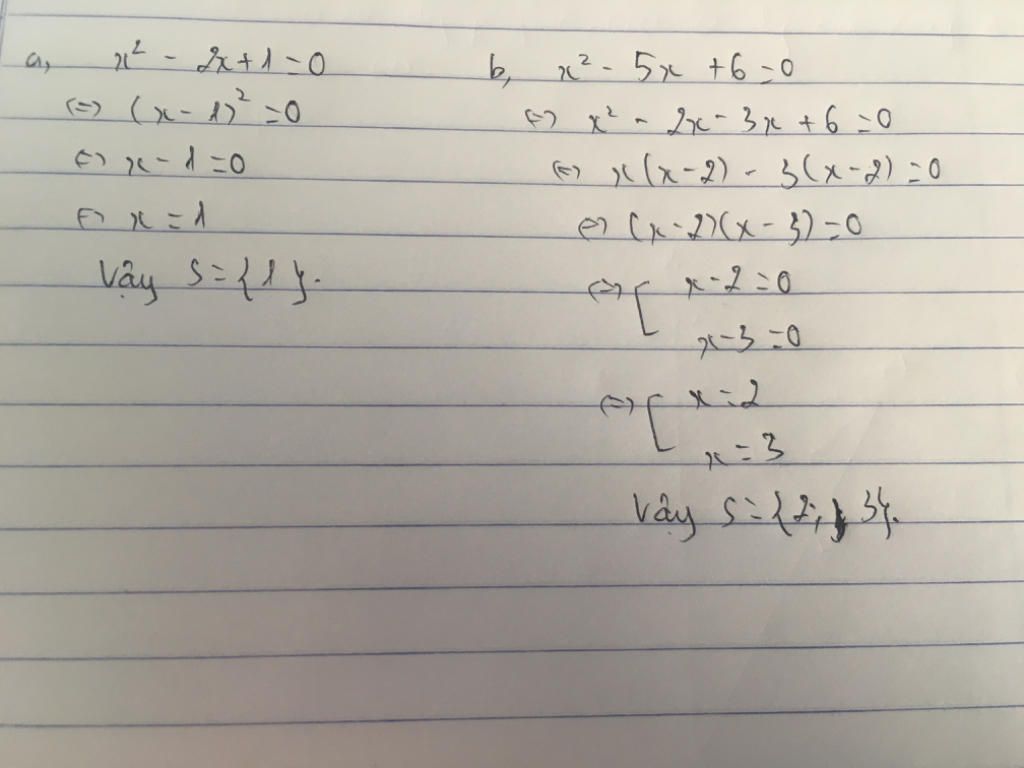 a, x² - 2x + 1 = 0
<=> (x - 1)² = 0
<=> x - 1 = 0
<=> x = 1
Vậy S = {1}.
b, x² - 5x + 6 = 0
<=> x² - 2x - 3x + 6 = 0
<=> x(x - 2) - 3(x - 2) = 0
<=> (x - 2)(x - 3) = 0
<=> [ x - 2 = 0
x - 3 = 0
<=> [ x = 2
x = 3
Vậy S = {2; 3}.